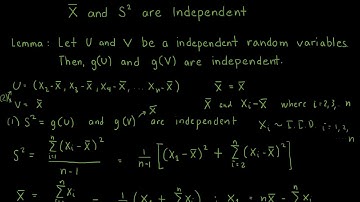 X̄ and S² are Independent
Lemma: Let U and V be a independent random variables
Then, g(U) and g(V) are independent.
U = (X₂-X̄, X₃-X̄, X₄-X̄, ... Xₙ-X̄) X̄ = X̄
V = X̄ X̄ and Xᵢ-X̄ where i=2,3,.. n
(1) S² = g(U) and g(V) → X̄ are independent Xᵢ ~ I.I.D. i=1,2, n
S² = Σᵢ₌₁ⁿ (Xᵢ-X̄)² / n-1 = 1/n-1 [(X₁-X̄)² + Σᵢ₌₂ⁿ (Xᵢ-X̄)²]